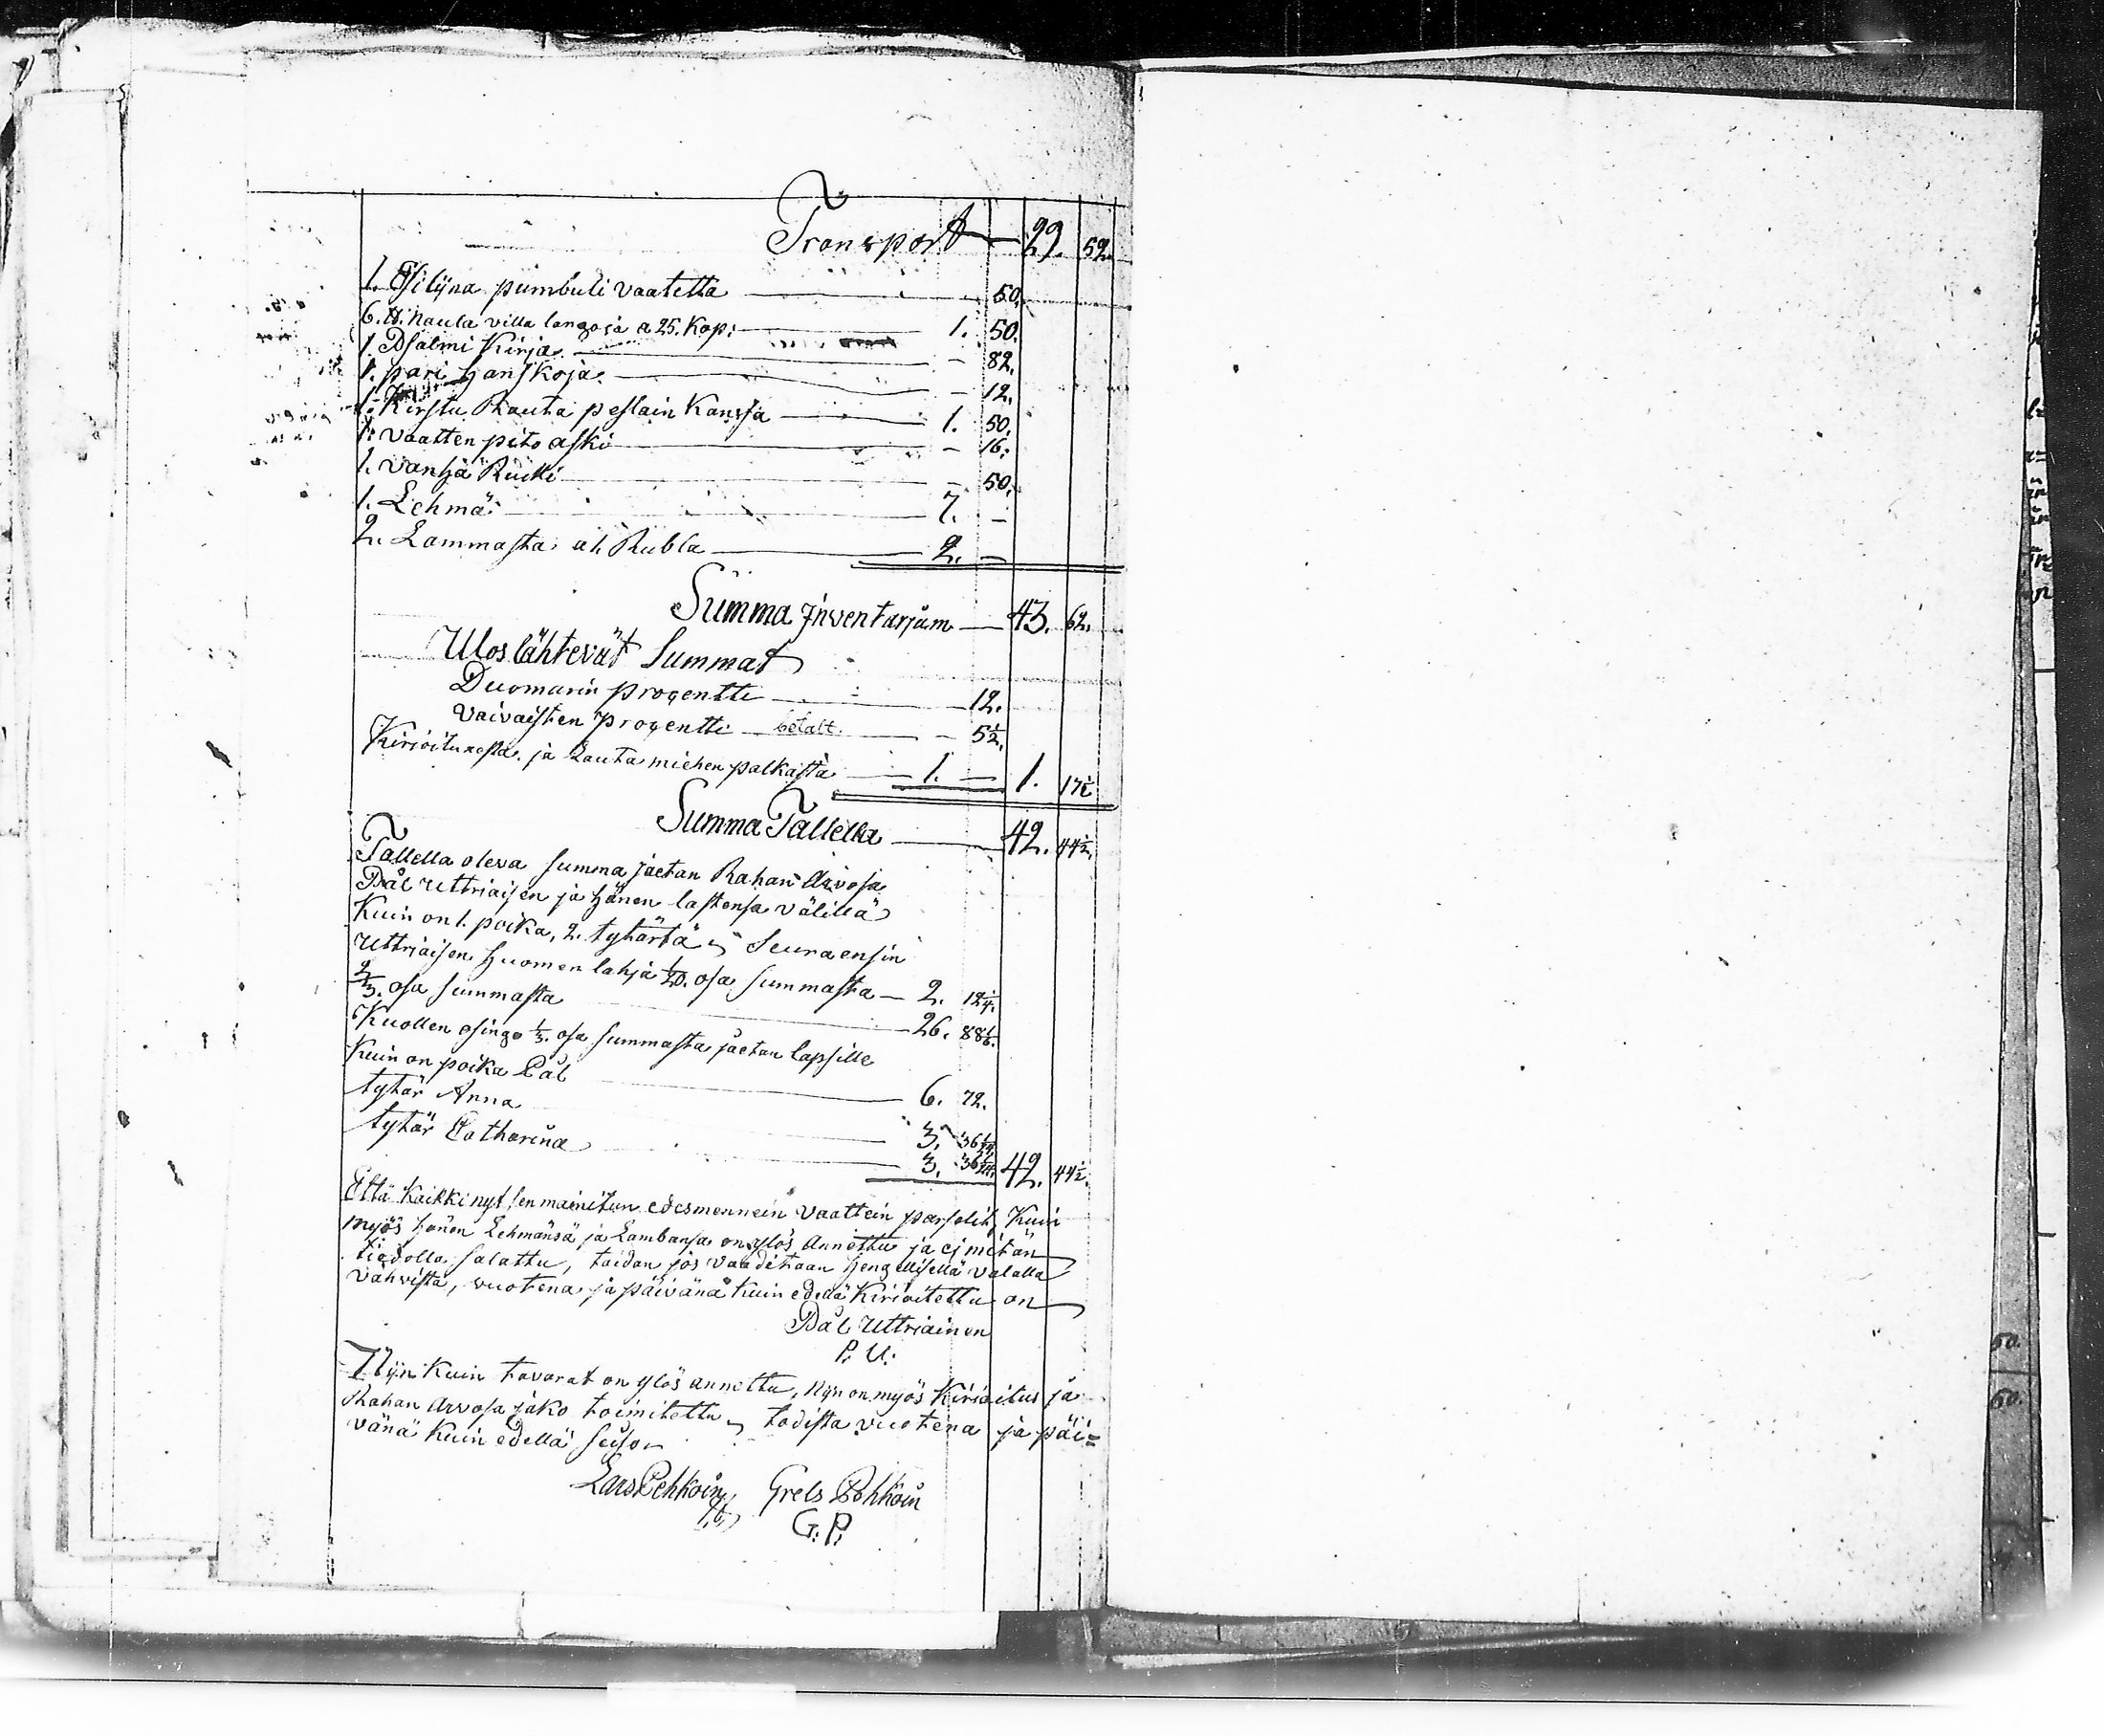 Transport — 29. 52.
1. pumbuli vaatetta — 50.
6. ℔. Naula villa langoja a 25. Kop: — 1. 50.
1. Psalmi Kirja — - 82.
1. pari Hanskoja — - 12.
1. Kirstu Rauta peslain Kanssa — 1. 50.
1. vaatten pito aski — - 16.
1. vanha Rucki — - 50.
1. Lehmä — 7. -
2. Lammasta a 1. Rubla — 2. —
Summa Inventarjum — 43. 62.
Ulos lähtevät Summat
Duomarin progentti — 12.
Vaivaisten progentti betalt — - 5½.
Kirjoituxesta ja Lautamiehen palkasta — 1. — 1. 17½
Summa Tallella — 42. 44½.
Tallella oleva summa jaetan Rahan Arvosa
Pål Uttriaisen ja hänen lastensa välillä
Kuin on 1. poika, 2. tytärtä, Seura ensin
Uttriaisen Huomen lahja 1/20. osa summasta — 2. 12¼.
2/3. osa summasta — 26. 88⅙.
Kuollen osingo 1/3. osa summasta jaetan lapsille
Kuin on poika Pål — 6. 72.
tytär Anna — 3. 36
tytär Catharina — 3. 36 42. 44½.
Että Kaikki nyt sen mainitun edesmennein vaattein parselit, Kuin
myös hänen Lehmänsä ja Lambansa on ylös Annettu ja ej mitän
tiedolla salattu, taidan jos vaaditaan Hengellisellä valalla
vahvista, vuotena ja päivänä Kuin edellä Kirjoitettu on
Pål Uttriainen
P. U.
Nijn Kuin tavarat on ylös annettu, Nijn on myös Kirjoitus ja
Rahan Arvosa jako toimitettu, todista vuotena ja päi=
vänä Kuin edellä seiso
Lars Pehkoin Grels Pehkoin
G. P.